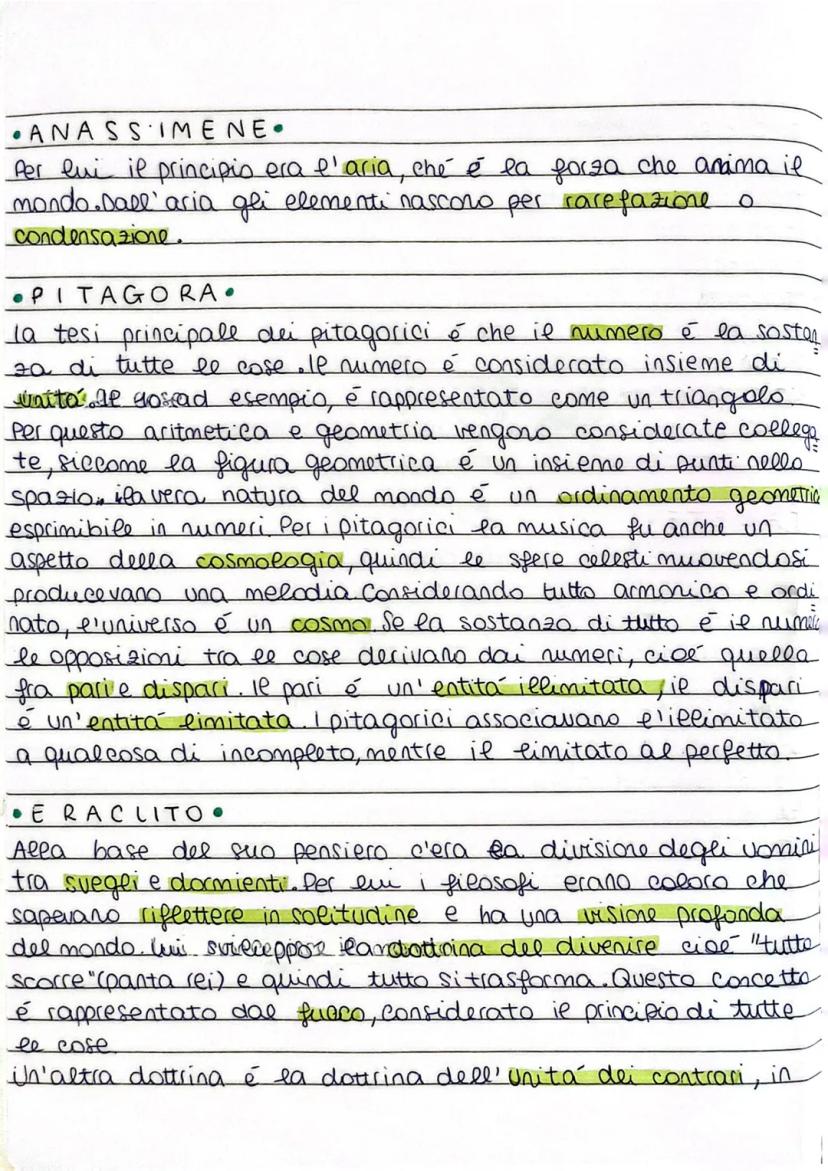 •ANASSIMENE•
Per lui il principio era l'aria, ché é la forza che anima il
mondo. Dall'aria gli elementi nascono per rarefazione o
condensazione.
•PITAGORA•
la tesi principale dei pitagorici é che il numero é la sostan
za di tutte le cose. Il numero é considerato insieme di
unitá. Il ad esempio, é rappresentato come un triangolo.
Per questo aritmetica e geometria vengono considerate collega
te, siccome la figura geometrica é un insieme di punti nello
spazio. la vera natura del mondo é un ordinamento geometric
esprimibile in numeri. Per i pitagorici la musica fu anche un
aspetto della cosmologia, quindi le sfere celesti muovendosi
producevano una melodia. Considerando tutto armonico e ordi
nato, l'universo é un cosmo. Se la sostanza di tutto é il
le opposizioni tra le cose derivano dai numeri, cioé quella
fra pari e dispari. Il pari é un'entitá illimitata, il dispari
é un'entitá limitata. I pitagorici associavano l'illimitato
a qualcosa di incompleto, mentre il limitato al perfetto.
•ERACLITO•
Alla base del suo pensiero c'era la divisione degli uomini
tra svegli e dormienti. Per lui i filosofi erano coloro che
sapevano riflettere in solitudine e ha una visione profonda
del mondo. Lui sviluppó la dottrina del divenire cioé "tutto
scorre" (panta rei) e quindi tutto si trasforma. Questo concetto
é rappresentato dal fuoco, considerato il principio di tutte
le cose
Un'altra dottrina é la dottrina dell'unitá dei contrari, in